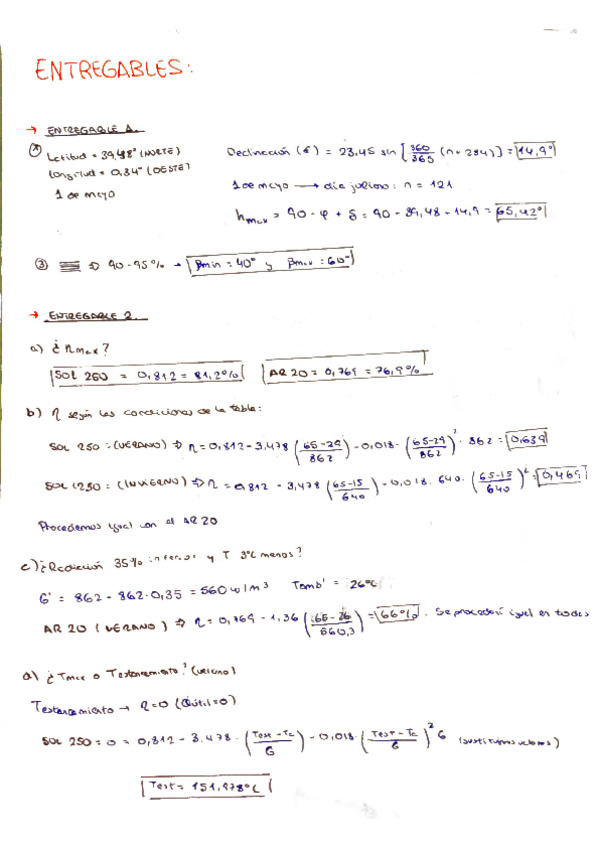 ENTREGABLES:
→ ENTREGABLE 1.
Latitud = 39,48° (NORTE)
Longitud = 0,34° (OESTE)
1 de mayo
Declinación (δ) = 23,45 sin [360/365 (n + 284)] = 14,9°
1 de mayo → día juliano: n = 121
hmax = 90 - φ + δ = 90 - 39,48 - 14,9 = 65,42°
③ ⇒ 90-95% → βmin = 40° y βmax = 60°
→ ENTREGABLE 2.
a) ¿ηmax?
SOL 250 = 0,812 = 81,2% AR 20 = 0,769 = 76,9%
b) η según las condiciones de la tabla:
SOL 250: (VERANO) ⇒ η = 0,812 - 3,478 (65-29/862) - 0,018 · (65-29/862)² · 862 = 0,639
SOL 250: (INVIERNO) ⇒ η = 0,812 - 3,478 (65-15/640) - 0,018 · 640 · (65-15/640)² = 0,469
Procedemos igual con el AR 20
c) ¿Radiación 35% inferior y T 3°C menos?
G' = 862 - 862·0,35 = 560 w/m³ Tamb' = 26°C
AR 20 (VERANO) ⇒ η = 0,769 - 1,36 (65-26/560,3) = 66% . Se procederá igual en todos
d) ¿Tmax o Testancamiento? (verano)
Testancamiento → η=0 (Qútil=0)
SOL 250 = 0 = 0,812 - 3,478 · (Test - Tc/G) - 0,018 · (Test - Tc/G)² G (sustituimos valores)
Test = 151,978°C